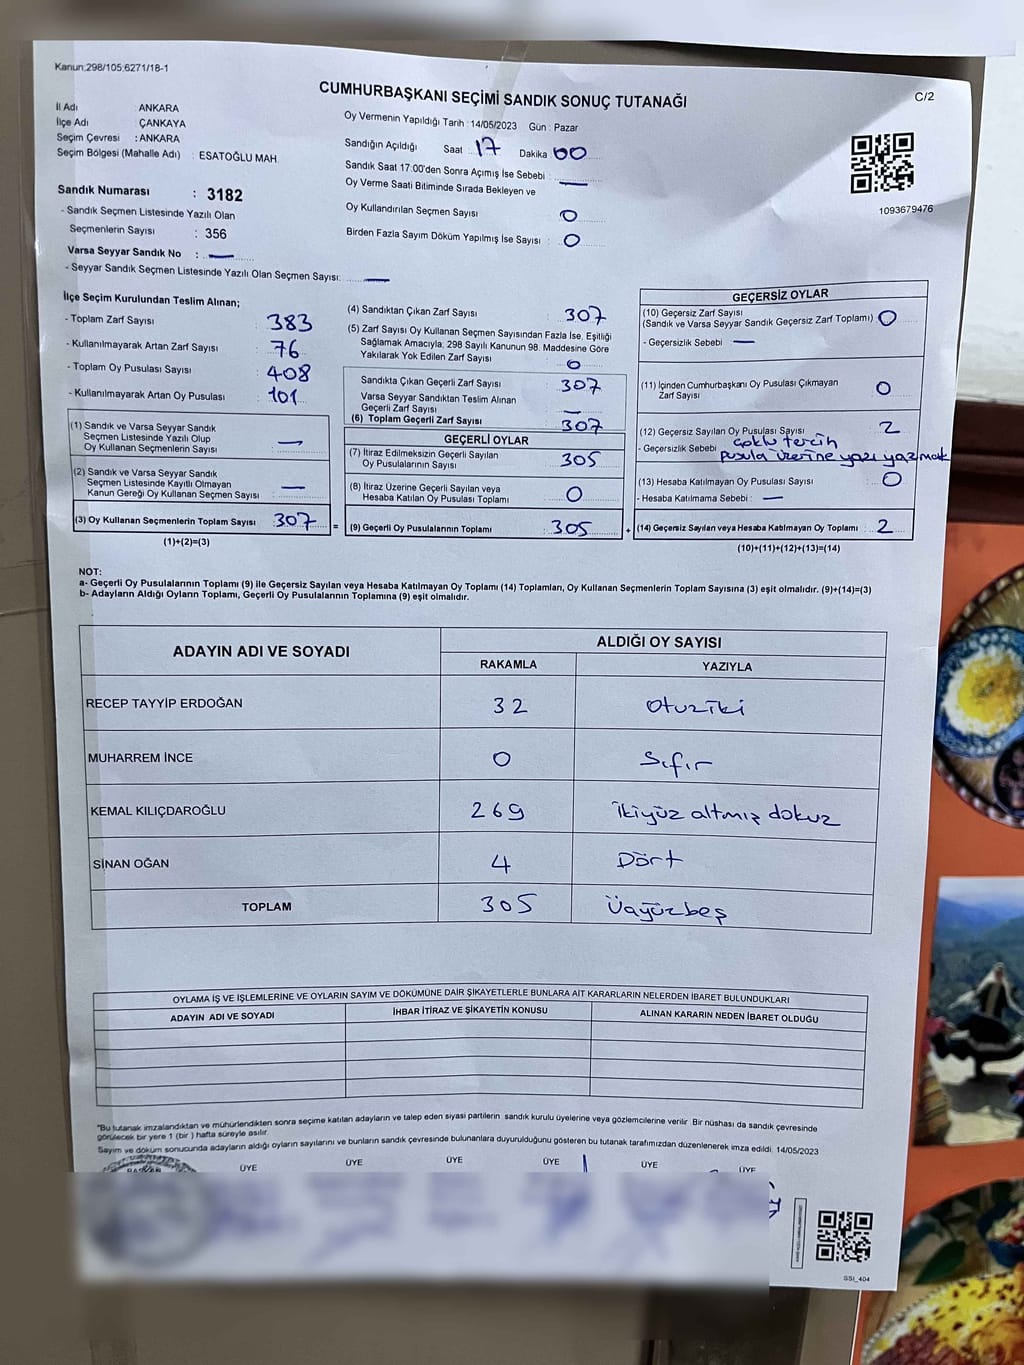 Kanun:298/105;6271/18-1
C/2
CUMHURBAŞKANI SEÇİMİ SANDIK SONUÇ TUTANAĞI
İl Adı : ANKARA
İlçe Adı : ÇANKAYA
Seçim Çevresi : ANKARA
Seçim Bölgesi (Mahalle Adı) : ESATOĞLU MAH.
Sandık Numarası : 3182
- Sandık Seçmen Listesinde Yazılı Olan
Seçmenlerin Sayısı : 356
Varsa Seyyar Sandık No : —
- Seyyar Sandık Seçmen Listesinde Yazılı Olan Seçmen Sayısı: —
Oy Vermenin Yapıldığı Tarih : 14/05/2023 Gün : Pazar
Sandığın Açıldığı Saat 17 Dakika 00
Sandık Saat 17:00'den Sonra Açımış İse Sebebi : —
Oy Verme Saati Bitiminde Sırada Bekleyen ve
Oy Kullandırılan Seçmen Sayısı 0
Birden Fazla Sayım Döküm Yapılmış İse Sayısı : 0
1093679476
İlçe Seçim Kurulundan Teslim Alınan;
- Toplam Zarf Sayısı : 383
- Kullanılmayarak Artan Zarf Sayısı : 76
- Toplam Oy Pusulası Sayısı : 408
- Kullanılmayarak Artan Oy Pusulası : 101
(1) Sandık ve Varsa Seyyar Sandık
Seçmen Listesinde Yazılı Olup
Oy Kullanan Seçmenlerin Sayısı : —
(2) Sandık ve Varsa Seyyar Sandık
Seçmen Listesinde Kayıtlı Olmayan
Kanun Gereği Oy Kullanan Seçmen Sayısı : —
(3) Oy Kullanan Seçmenlerin Toplam Sayısı : 307 =
(1)+(2)=(3)
(4) Sandıktan Çıkan Zarf Sayısı : 307
(5) Zarf Sayısı Oy Kullanan Seçmen Sayısından Fazla İse, Eşitliği
Sağlamak Amacıyla; 298 Sayılı Kanunun 98. Maddesine Göre
Yakılarak Yok Edilen Zarf Sayısı : 0
Sandıkta Çıkan Geçerli Zarf Sayısı : 307
Varsa Seyyar Sandıktan Teslim Alınan
Geçerli Zarf Sayısı : —
(6) Toplam Geçerli Zarf Sayısı : 307
GEÇERLİ OYLAR
(7) İtiraz Edilmeksizin Geçerli Sayılan
Oy Pusulalarının Sayısı : 305
(8) İtiraz Üzerine Geçerli Sayılan veya
Hesaba Katılan Oy Pusulası Toplamı : 0
(9) Geçerli Oy Pusulalarının Toplamı : 305 +
GEÇERSİZ OYLAR
(10) Geçersiz Zarf Sayısı
(Sandık ve Varsa Seyyar Sandık Geçersiz Zarf Toplamı) 0
- Geçersizlik Sebebi : —
(11) İçinden Cumhurbaşkanı Oy Pusulası Çıkmayan
Zarf Sayısı : 0
(12) Geçersiz Sayılan Oy Pusulası Sayısı : 2
- Geçersizlik Sebebi : çoklu tercih
pusula üzerine yazı yazmak
(13) Hesaba Katılmayan Oy Pusulası Sayısı : 0
- Hesaba Katılmama Sebebi : —
(14) Geçersiz Sayılan veya Hesaba Katılmayan Oy Toplamı : 2
(10)+(11)+(12)+(13)=(14)
NOT:
a- Geçerli Oy Pusulalarının Toplamı (9) ile Geçersiz Sayılan veya Hesaba Katılmayan Oy Toplamı (14) Toplamları, Oy Kullanan Seçmenlerin Toplam Sayısına (3) eşit olmalıdır. (9)+(14)=(3)
b- Adayların Aldığı Oyların Toplamı, Geçerli Oy Pusulalarının Toplamına (9) eşit olmalıdır.
ADAYIN ADI VE SOYADI ALDIĞI OY SAYISI
RAKAMLA YAZIYLA
RECEP TAYYİP ERDOĞAN 32 otuziki
MUHARREM İNCE 0 Sıfır
KEMAL KILIÇDAROĞLU 269 ikiyüz altmış dokuz
SİNAN OĞAN 4 Dört
TOPLAM 305 Üçyüzbeş
OYLAMA İŞ VE İŞLEMLERİNE VE OYLARIN SAYIM VE DÖKÜMÜNE DAİR ŞİKAYETLERLE BUNLARA AİT KARARLARIN NELERDEN İBARET BULUNDUKLARI
ADAYIN ADI VE SOYADI İHBAR İTİRAZ VE ŞİKAYETİN KONUSU ALINAN KARARIN NEDEN İBARET OLDUĞU
*Bu tutanak imzalandıktan ve mühürlendikten sonra seçime katılan adayların ve talep eden siyasi partilerin sandık kurulu üyelerine veya gözlemcilerine verilir. Bir nüshası da sandık çevresinde
görülecek bir yere 1 (bir ) hafta süreyle asılır.
Sayım ve döküm sonucunda adayların aldığı oyların sayılarını ve bunların sandık çevresinde bulunanlara duyurulduğunu gösteren bu tutanak tarafımızdan düzenlenerek imza edildi. 14/05/2023
ÜYE ÜYE ÜYE ÜYE ÜYE ÜYE
SSI_404